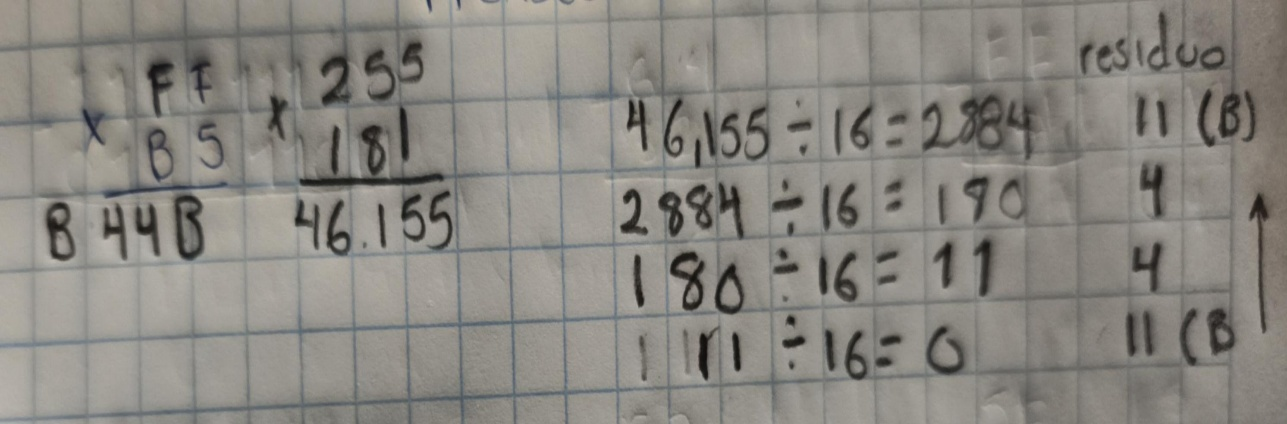 FF
x B5
B44B
255
x 181
46.155
residuo
46,155 ÷ 16 = 2884 11 (B)
2884 ÷ 16 = 180 4
180 ÷ 16 = 11 4
11 ÷ 16 = 0 11 (B